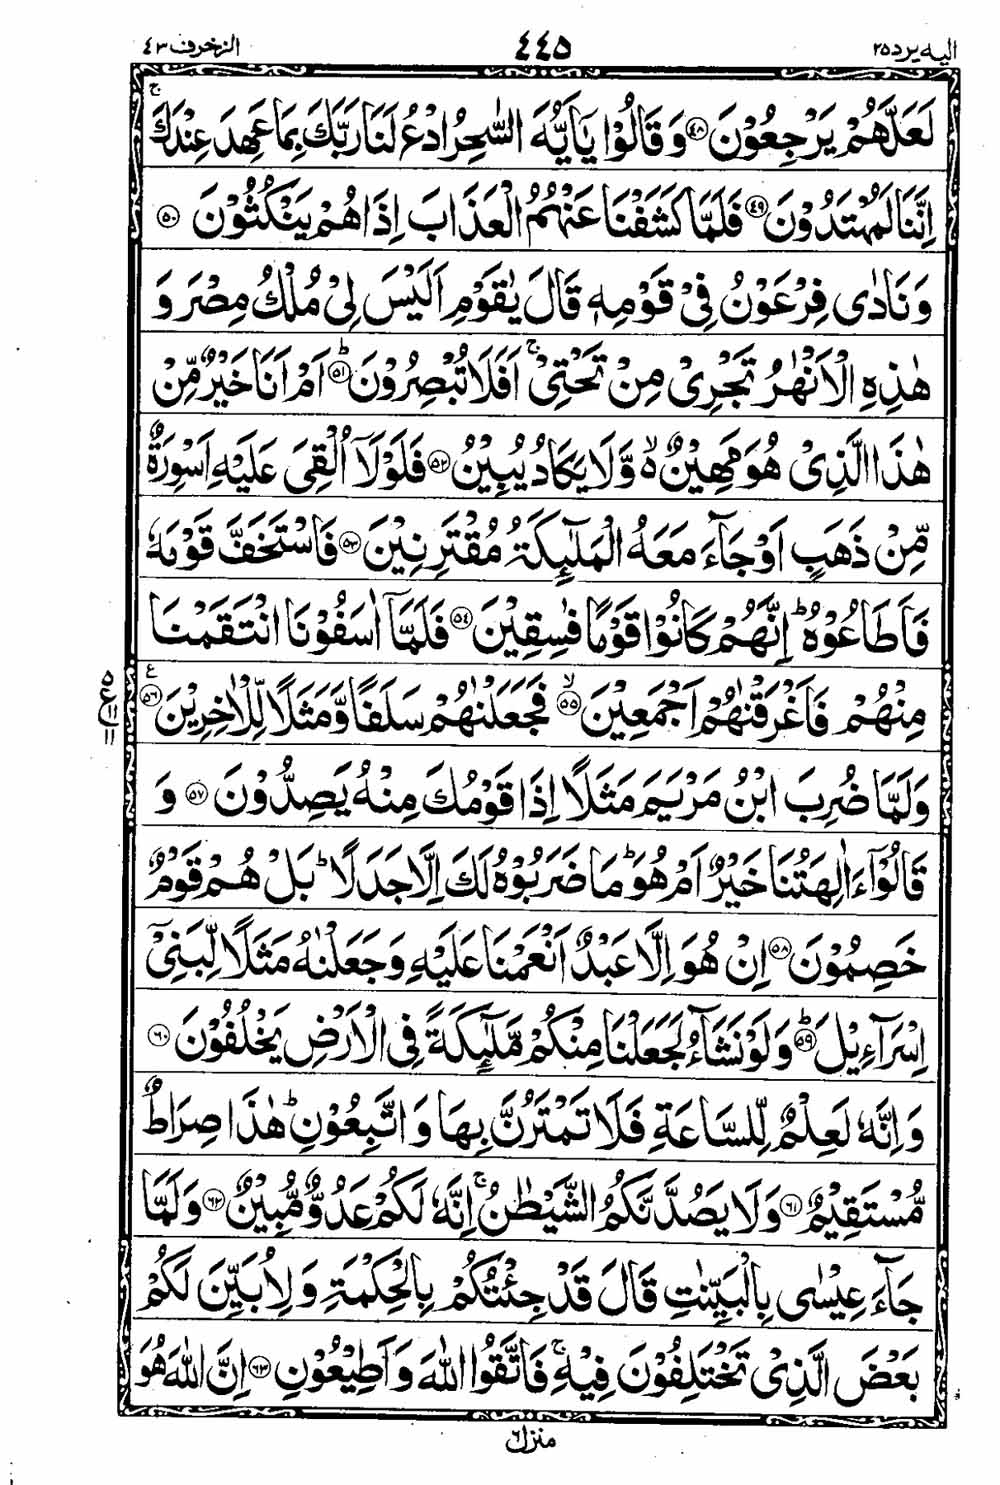 اليه يرد ٢٥ ٤٤٥ الزخرف ٤٣
لَعَلَّهُمْ يَرْجِعُوْنَ ﴿٤٨﴾ وَقَالُوْا يٰۤاَيُّهَ السّٰحِرُ ادْعُ لَنَا رَبَّكَ بِمَا عَهِدَ عِنْدَكَ ۚ
اِنَّنَا لَمُهْتَدُوْنَ ﴿٤٩﴾ فَلَمَّا كَشَفْنَا عَنْهُمُ الْعَذَابَ اِذَا هُمْ يَنْكُثُوْنَ ﴿٥٠﴾
وَنَادٰى فِرْعَوْنُ فِيْ قَوْمِهٖ قَالَ يٰقَوْمِ اَلَيْسَ لِيْ مُلْكُ مِصْرَ وَ
هٰذِهِ الْاَنْهٰرُ تَجْرِيْ مِنْ تَحْتِيْ ۚ اَفَلَا تُبْصِرُوْنَ ﴿٥١﴾ؕ اَمْ اَنَا خَيْرٌ مِّنْ
هٰذَا الَّذِيْ هُوَ مَهِيْنٌ ۙ۬ وَّلَا يَكَادُ يُبِيْنُ ﴿٥٢﴾ فَلَوْلَاۤ اُلْقِيَ عَلَيْهِ اَسْوِرَةٌ
مِّنْ ذَهَبٍ اَوْ جَآءَ مَعَهُ الْمَلٰٓئِكَةُ مُقْتَرِنِيْنَ ﴿٥٣﴾ فَاسْتَخَفَّ قَوْمَهٗ
فَاَطَاعُوْهُ ؕ اِنَّهُمْ كَانُوْا قَوْمًا فٰسِقِيْنَ ﴿٥٤﴾ فَلَمَّاۤ اٰسَفُوْنَا انْتَقَمْنَا
مِنْهُمْ فَاَغْرَقْنٰهُمْ اَجْمَعِيْنَ ﴿٥٥﴾ۙ فَجَعَلْنٰهُمْ سَلَفًا وَّمَثَلًا لِّلْاٰخِرِيْنَ ﴿٥٦﴾ ع
٥ ع ١١ ١١
وَلَمَّا ضُرِبَ ابْنُ مَرْيَمَ مَثَلًا اِذَا قَوْمُكَ مِنْهُ يَصِدُّوْنَ ﴿٥٧﴾ وَ
قَالُوْۤا ءَاٰلِهَتُنَا خَيْرٌ اَمْ هُوَ ؕ مَا ضَرَبُوْهُ لَكَ اِلَّا جَدَلًا ؕ بَلْ هُمْ قَوْمٌ
خَصِمُوْنَ ﴿٥٨﴾ اِنْ هُوَ اِلَّا عَبْدٌ اَنْعَمْنَا عَلَيْهِ وَجَعَلْنٰهُ مَثَلًا لِّبَنِيْۤ
اِسْرَآءِيْلَ ﴿٥٩﴾ؕ وَلَوْ نَشَآءُ لَجَعَلْنَا مِنْكُمْ مَّلٰٓئِكَةً فِى الْاَرْضِ يَخْلُفُوْنَ ﴿٦٠﴾
وَاِنَّهٗ لَعِلْمٌ لِّلسَّاعَةِ فَلَا تَمْتَرُنَّ بِهَا وَاتَّبِعُوْنِ ؕ هٰذَا صِرَاطٌ
مُّسْتَقِيْمٌ ﴿٦١﴾ وَلَا يَصُدَّنَّكُمُ الشَّيْطٰنُ ۚ اِنَّهٗ لَكُمْ عَدُوٌّ مُّبِيْنٌ ﴿٦٢﴾ وَلَمَّا
جَآءَ عِيْسٰى بِالْبَيِّنٰتِ قَالَ قَدْ جِئْتُكُمْ بِالْحِكْمَةِ وَلِاُبَيِّنَ لَكُمْ
بَعْضَ الَّذِيْ تَخْتَلِفُوْنَ فِيْهِ ۚ فَاتَّقُوا اللّٰهَ وَاَطِيْعُوْنِ ﴿٦٣﴾ اِنَّ اللّٰهَ هُوَ
منزل ٦